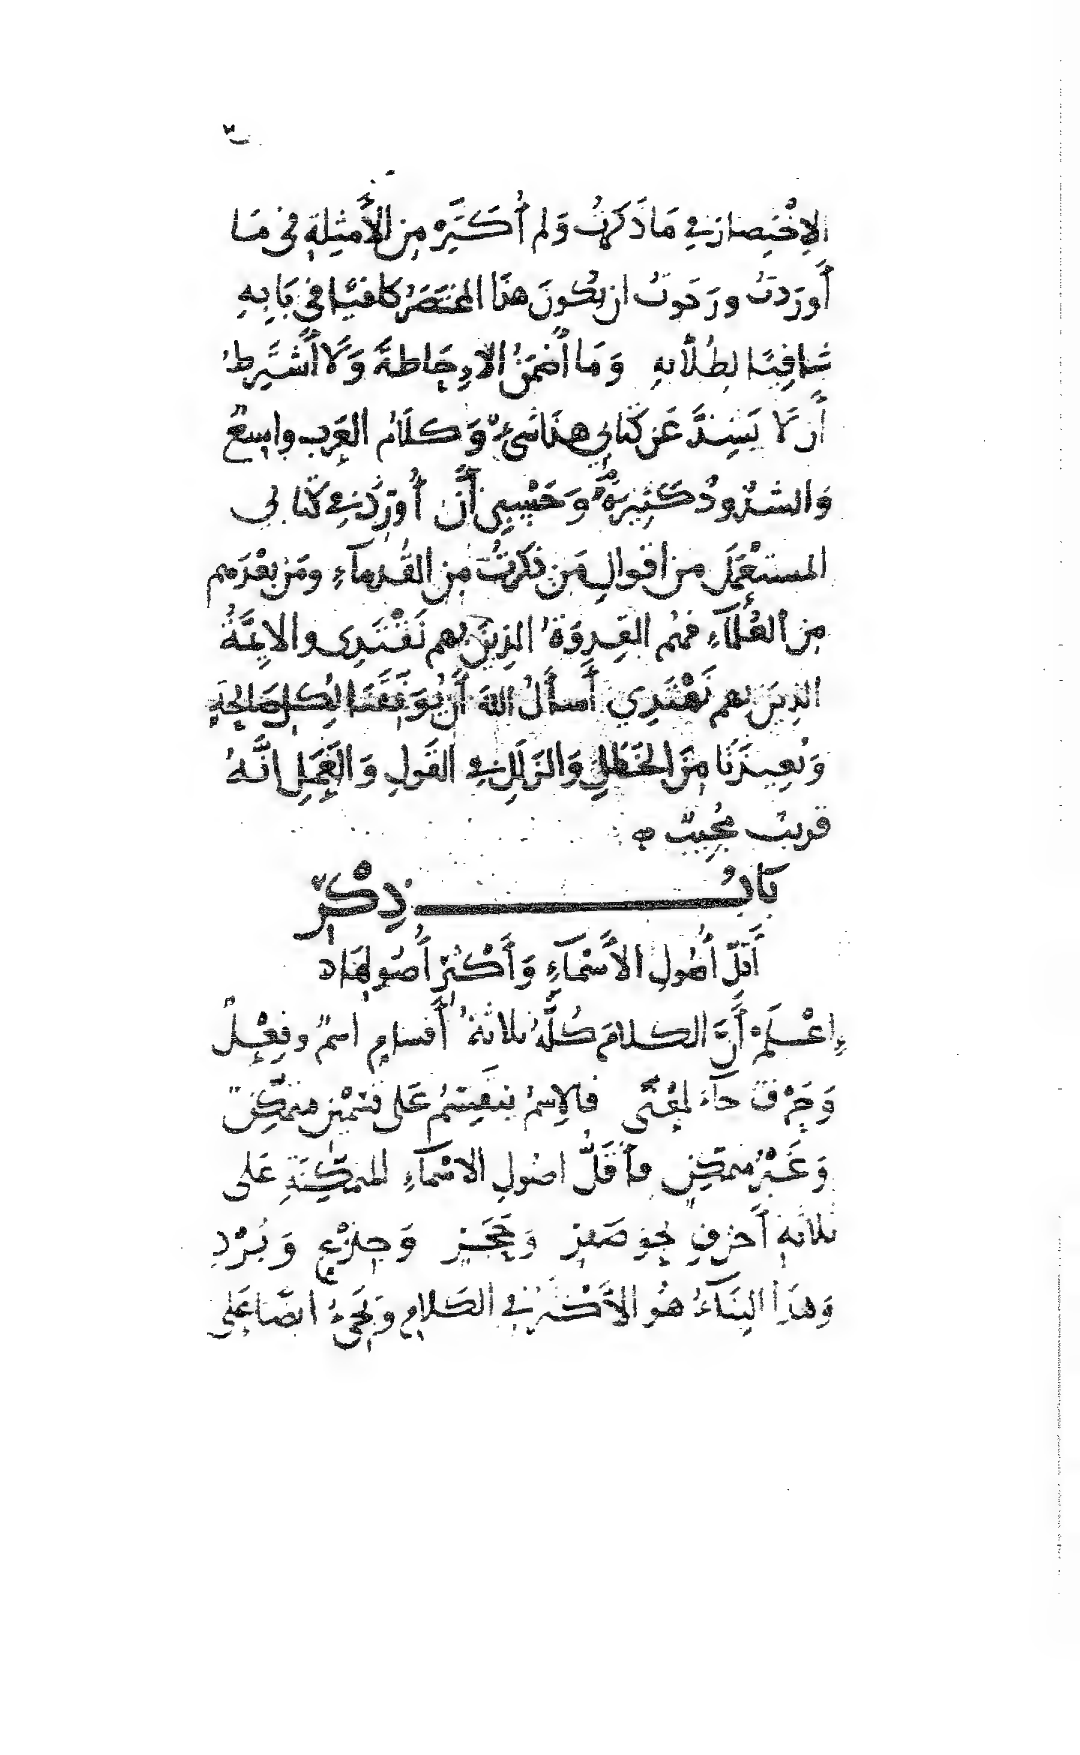 ٣
الاِخْتِصَارَ في مَا ذَكَرتُ وَلم أُكَثِّرْ مِن الأَمثِلةِ في مَا
أَوردتُ ورجَوتُ ان يكُونَ هذَا المختَصَرُ كافيًا في بَابِهِ
شَافِيًا لطُلّابهِ وَمَا أَضمَنُ الاِحَاطةَ وَلَا أَشتَرِطُ
أَن لَا يَشِذَّ عَن كتابي هذَا شَىءٌ وَكلَامُ العَرَب واسِعٌ
وَالشذُوذُ كَثِيرَةٌ وَحَسْبِي أَن أُورِدَ في كتابي
المستعْمَلَ من أقوالِ مَن ذكرتُ مِن القُدمآءِ ومَن بعْدَهم
مِن العُلمآءِ فهُم القدوَةُ الذِينَ بهم نَقْتَدِى والائمَّةُ
الذِينَ بهم نَهْتَدِي أَسأَلُ اللهَ أَن يُوَفّقَنَا لِكلِّ صَالحَةٍ
وَيُعيذَنَا مِنَ الخَطَلِ وَالزَلَلِ في القَولِ وَالعَمَلِ انَّهُ
قريبٌ مُجِيبٌ ه
بَابُ ذِكْرِ
أَقلّ أُصُولِ الأَسْمَآءِ وَأَكْثرِ أُصُولهَا
اِعْلَمْ أَنَّ الكلامَ كُلَّهُ ثلاثةُ أَقسامٍ اسمٌ وفِعْلٌ
وَحَرْفٌ جآءَ لمعْنًى فالاِسمُ ينقسِمُ عَلى قسْمَيْن متمكّنٌ
وَغَيْرُ متمكّنٍ فأَقَلُّ اصُولِ الاسْمآءِ المتمكّنَةِ عَلى
ثلاثهِ أَحرفٍ نحو صَقرٍ وَحَجَرٍ وَجِذْعٍ وَبُرْدٍ
وَهذَا البنآءُ هُو الأَكْثَرُ في الكَلامِ وَيجىءُ ايضًا عَلى